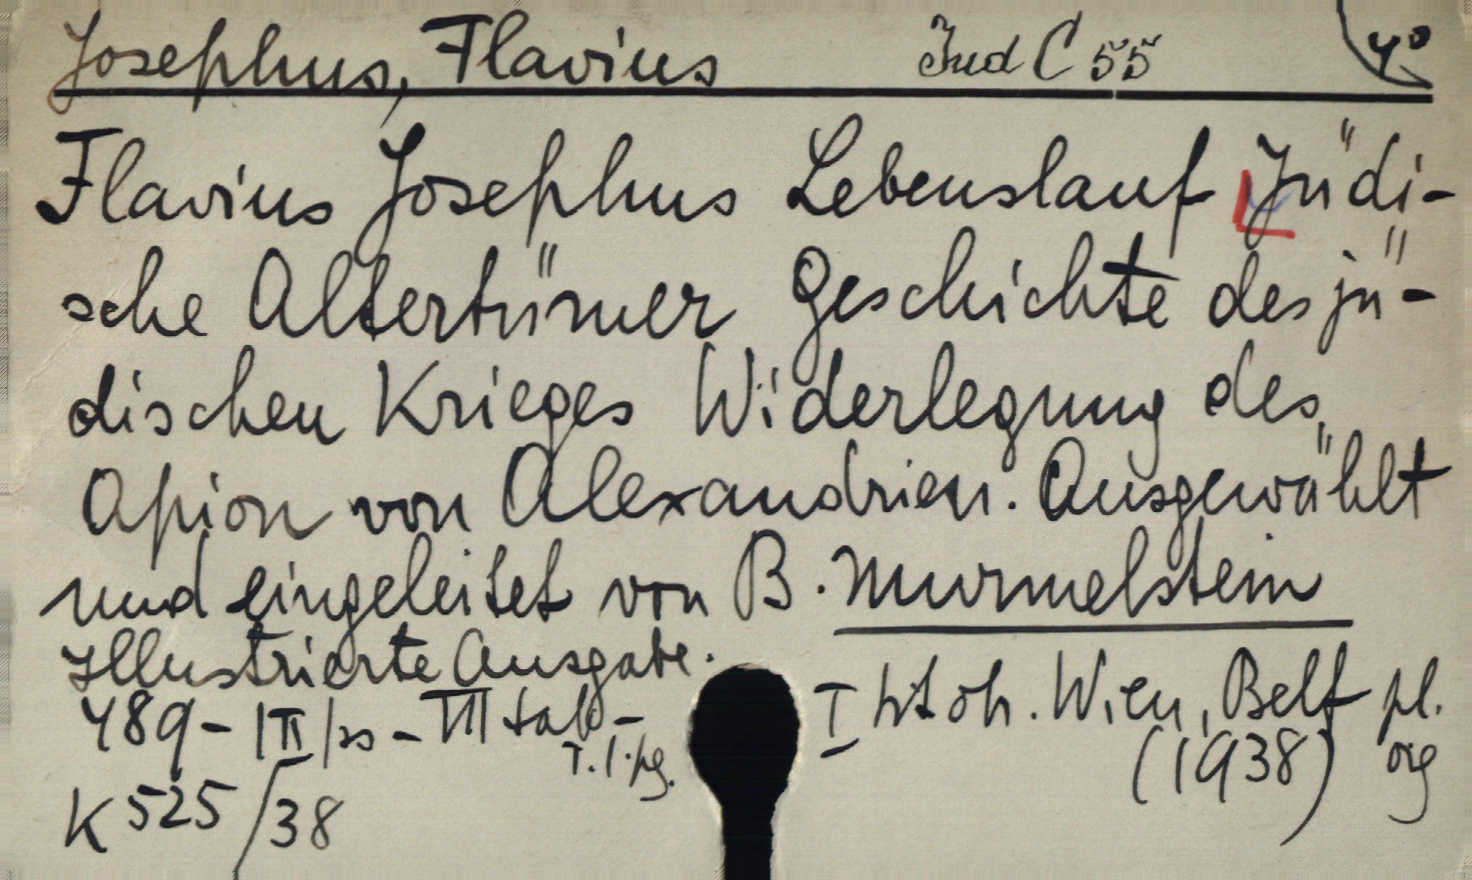 Josephus, Flavius Jud C 55 4°
Flavius Josephus Lebenslauf Jüdi-
sche Altertümer Geschichte des jü-
dischen Krieges Widerlegung des
Apion von Alexandrien. Ausgewählt
und eingeleitet von B. Murmelstein
Illustrierte Ausgabe.
489 - |II| ss - VII tab -
T. I. pg.
I Wien, Belf pl.
(1938) org
K 525/38